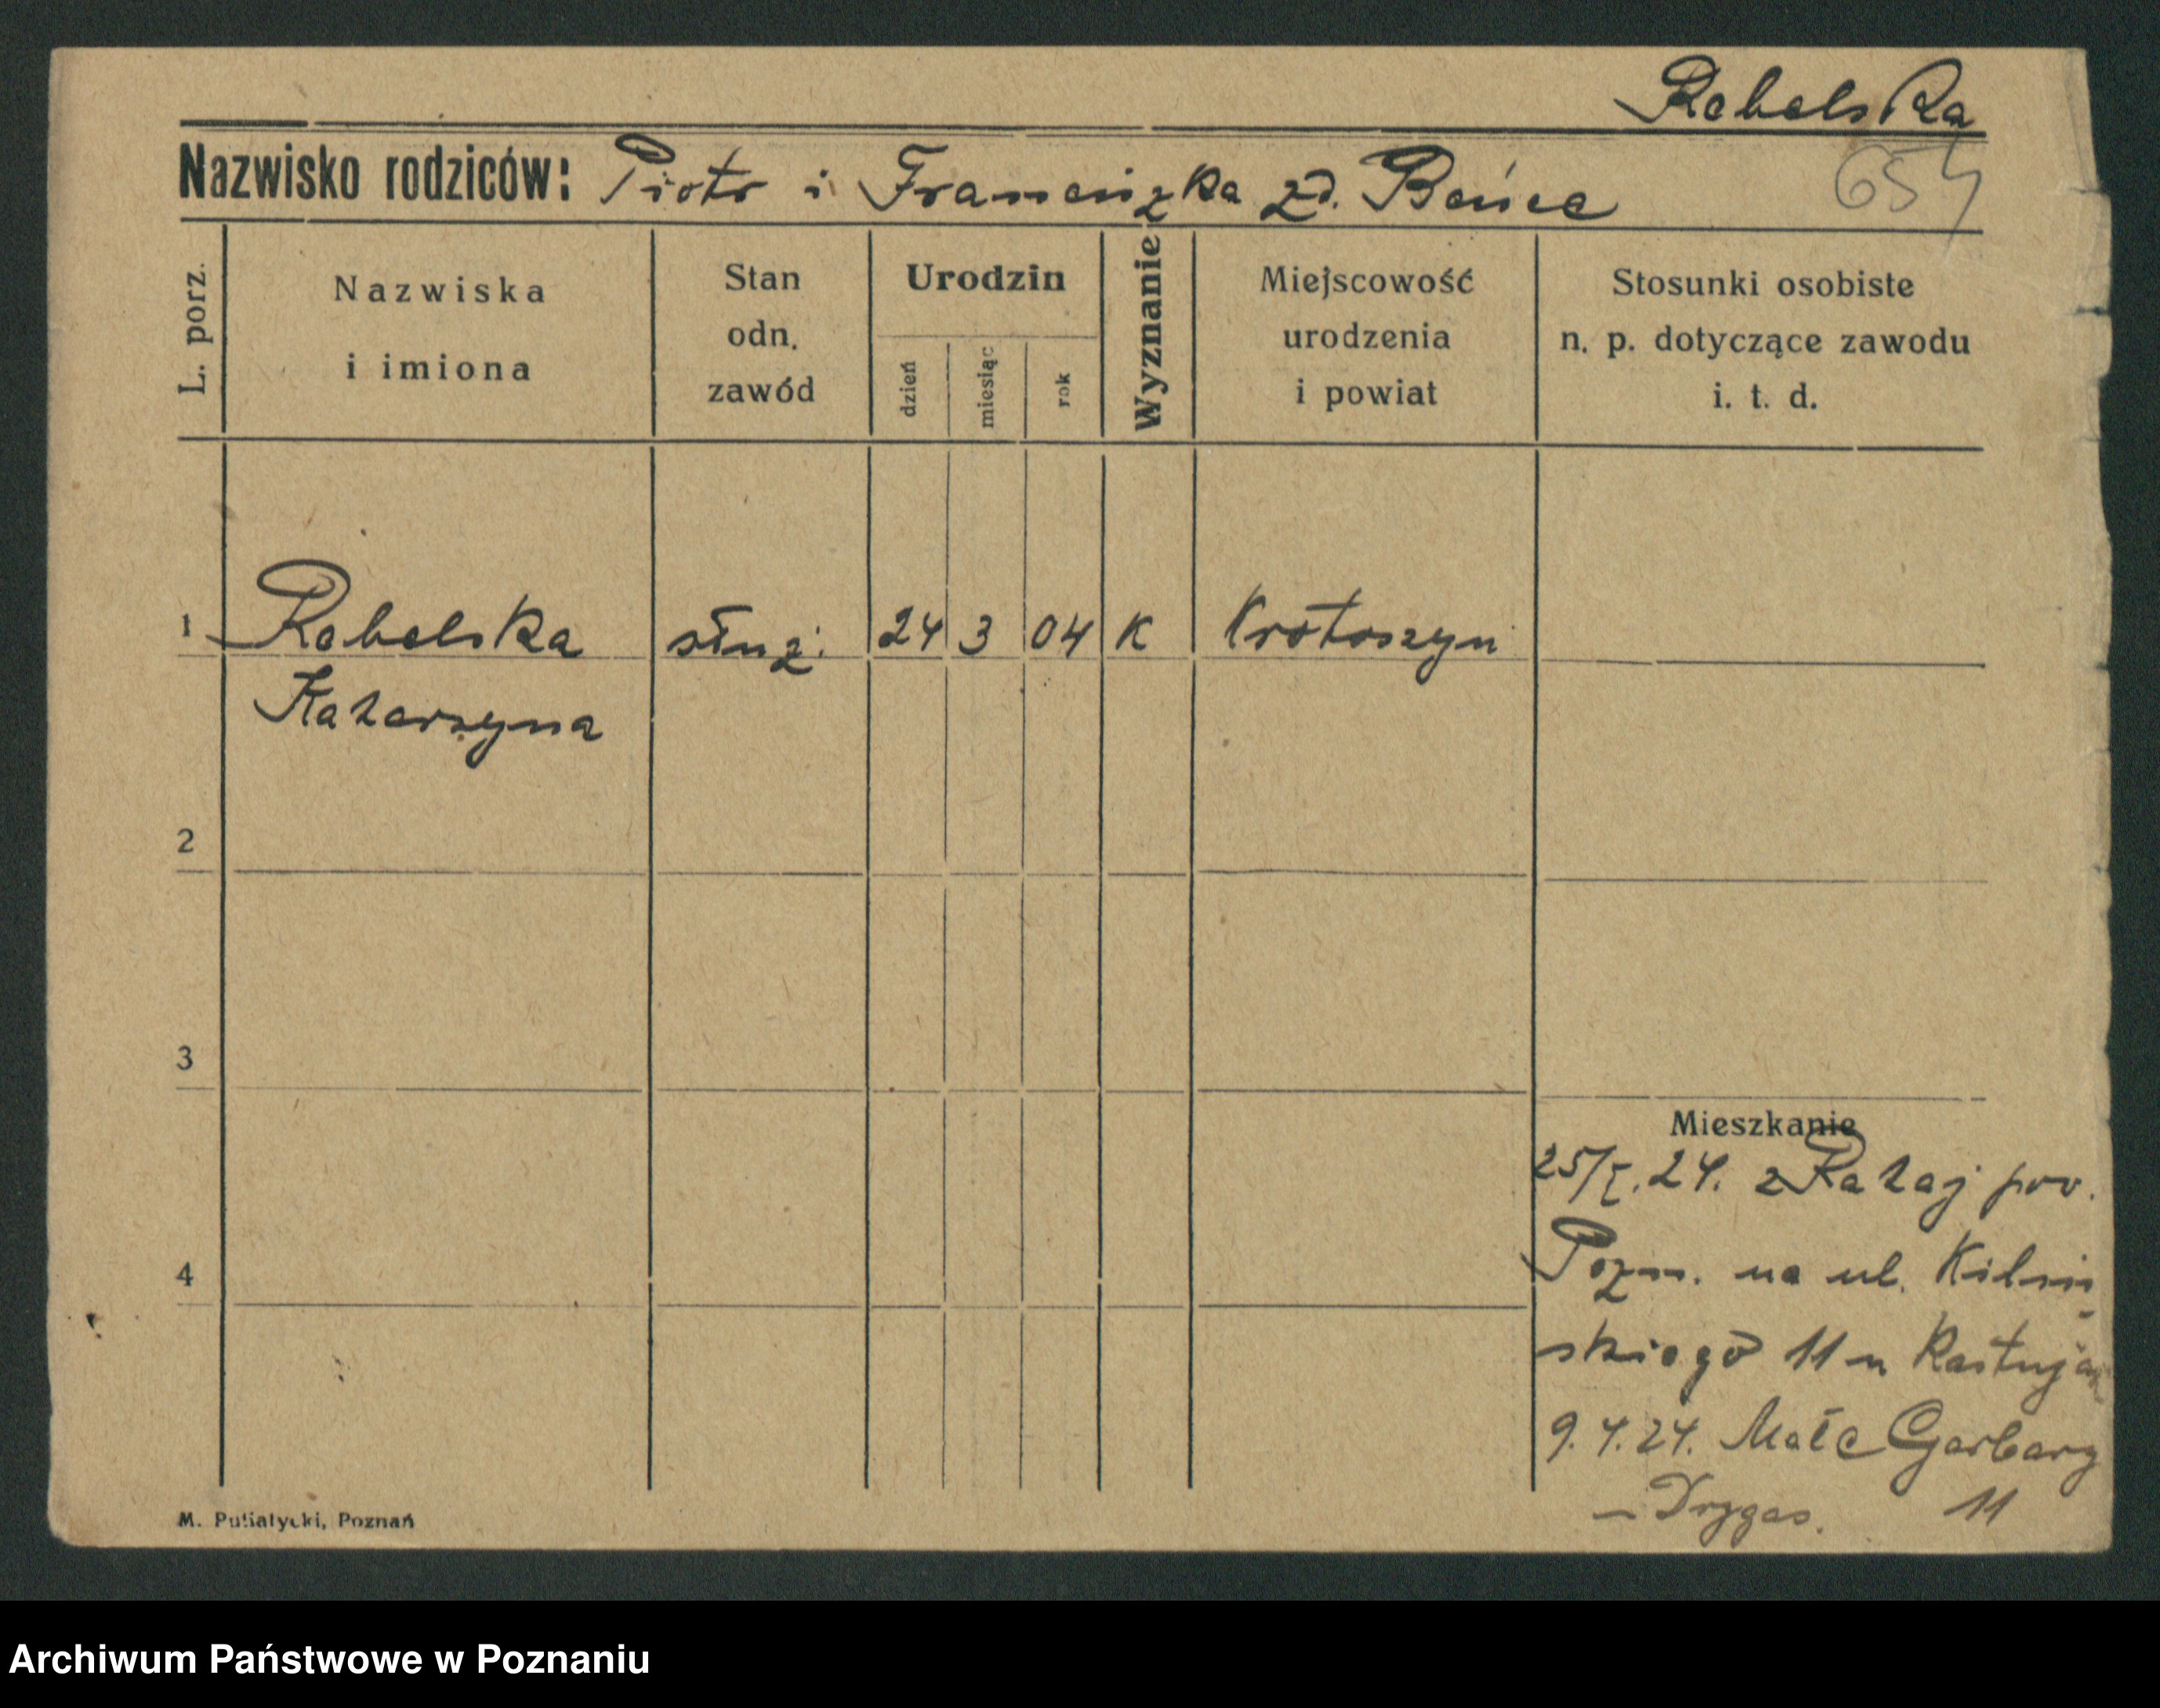 Rebelska
Nazwisko rodziców: Piotr i Franciszka zd. Bańce
654
L. porz.
Nazwiska
i imiona
Stan
odn.
zawód
Urodzin
dzień
miesiąc
rok
Wyznanie
Miejscowość
urodzenia
i powiat
Stosunki osobiste
n. p. dotyczące zawodu
i. t. d.
1 Rebelska służ. 24 3 04 K Krotoszyn
Katarzyna
2
3
4
Mieszkanie
25/I.24. z Rataj pow.
Pozn. na ul. Kiliń-
skiego 11 u
9.4.24. Małe Garbary
– Drygas. 11
M. Putiatycki, Poznań
Archiwum Państwowe w Poznaniu